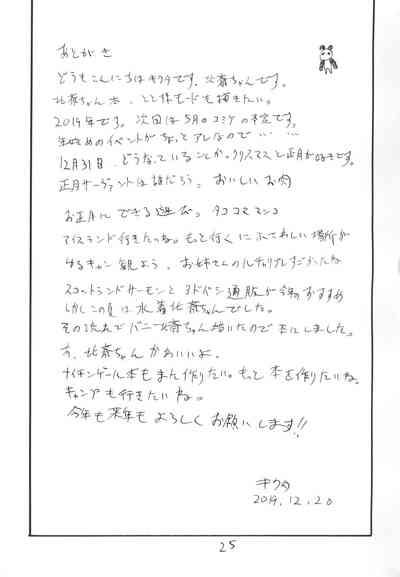 あとがき
どうもこんにちはキクタです。北斎ちゃんです。
北斎ちゃん本、とと様モードも描きたい。
2019年です。次回は5月のコミケの予定です。
年始めのイベントがちょっとアレなので… …
12月31日、どうなっていることか。クリスマスと正月が好きです。
正月サーヴァントは誰だろう。おいしいお肉
お正月にできる遊び。タココマ
アイスランド行きたいな。もって行くにふさわしい場所が
ゆるキャン観よう、お姉さんの
スコットランドサーモンとヨドバシ通販が今年のおすすめ
しかしこの夏は水着北斎ちゃんでした。
その流れでバニー北斎ちゃん描いたので本にしました。
北斎ちゃんかわいいよ。
ナイチンゲール本もまた作りたい。もっと本を作りたいね。
キャンプも行きたいね。
今年も来年もよろしくお願いします!!
キクタ
2019.12.20
25